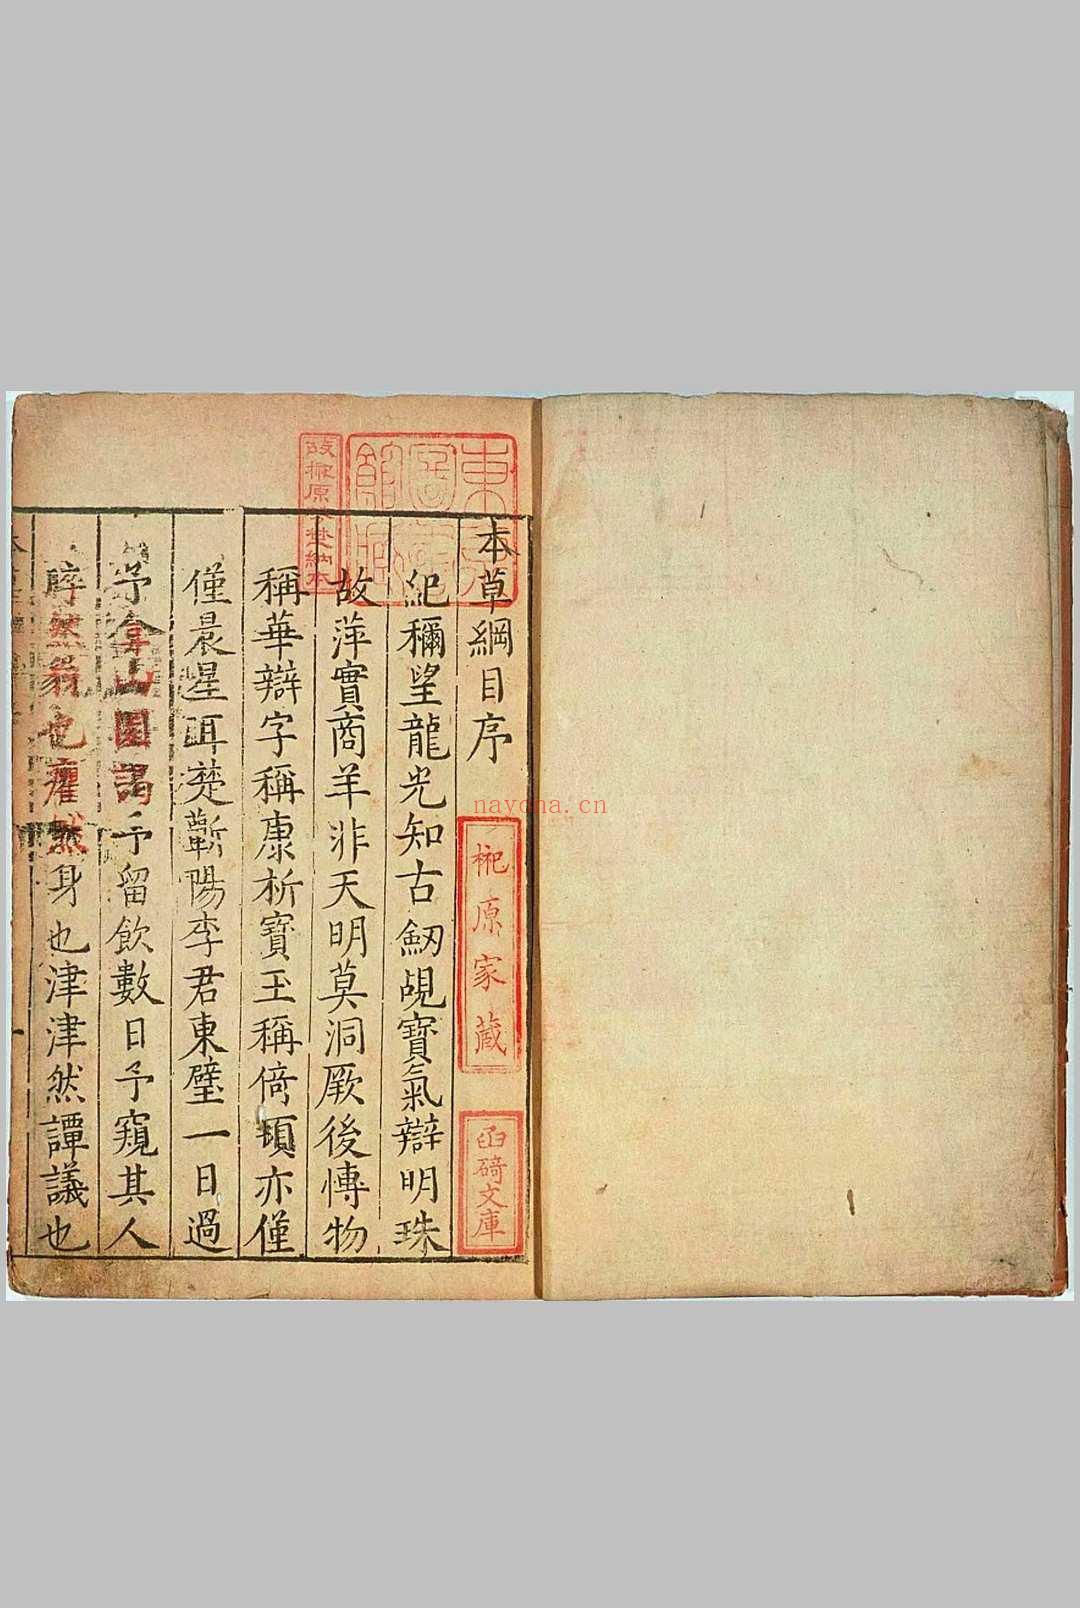 本草綱目序
紀稱望龍光知古劒覘寳氣辯明珠
故萍實商羊非天明莫洞厥後愽物
稱華辯字稱康析寳玉稱倚頓亦僅
僅晨星耳楚蘄陽李君東璧一日過
予弇山園謁予留飲數日予窺其人
睟然貌也癯然身也津津然譚議也
榊原家藏
故榊原 芳埜納本
東京圖書館藏
文庫
nayona.cn